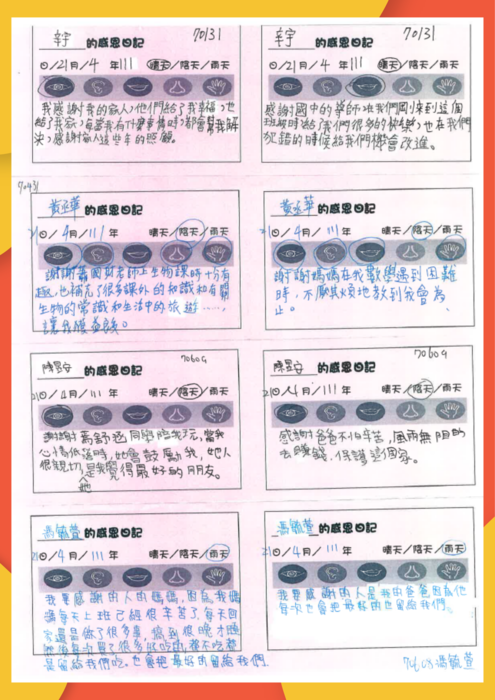 70131
的感恩日記
日/21月/4年111 晴天/陰天/雨天
我感謝我的家人,他們給了我幸福,也
給了我家,每當我有什麼事情時,都會幫我解
決,感謝家人這些年的照顧。
70131
的感恩日記
日/21月/4年111 晴天/陰天/雨天
感謝國中的導師,在我們剛來到這個
班級時給了我們很多的快樂,也在我們
犯錯的時候給我們機會改進。
70431
黃丞華 的感恩日記
21日/4月/111年 晴天/陰天/雨天
謝謝 國 老師上生物課時十分有
趣,也補充了很多課外的知識和有關
生物的常識和生活中的旅遊......
讓我獲益 。
黃丞華 的感恩日記
21日/4月/111年 晴天/陰天/雨天
謝謝媽媽在我數學遇到困難
時,不厭其煩地教到我會為
止。
70609
陳昱安 的感恩日記
21日/4月/111年 晴天/陰天/雨天
謝謝萬舒 同學陪我玩,當我
心情低落時,她會鼓勵我,她人
很親切,她是我覺得最好的朋友。
70609
陳昱安 的感恩日記
21日/4月/111年 晴天/陰天/雨天
感謝爸爸不怕辛苦,風雨無阻的
去賺錢,保護這個家。
馮毓萱 的感恩日記
21日/4月/111年 晴天/陰天/雨天
我要感謝的人的媽媽,因為我媽
媽每天上班已經很辛苦了,每天回
家還是做了很多事,做到很晚才睡
她每次買了很多好吃的,都不吃都
是留給我們吃,也會把最好的留給我們
馮毓萱 的感恩日記
21日/4月/111年 晴天/陰天/雨天
我要感謝的人是我的爸爸因為他
每次也會把最好的也留給我們。
馮毓萱